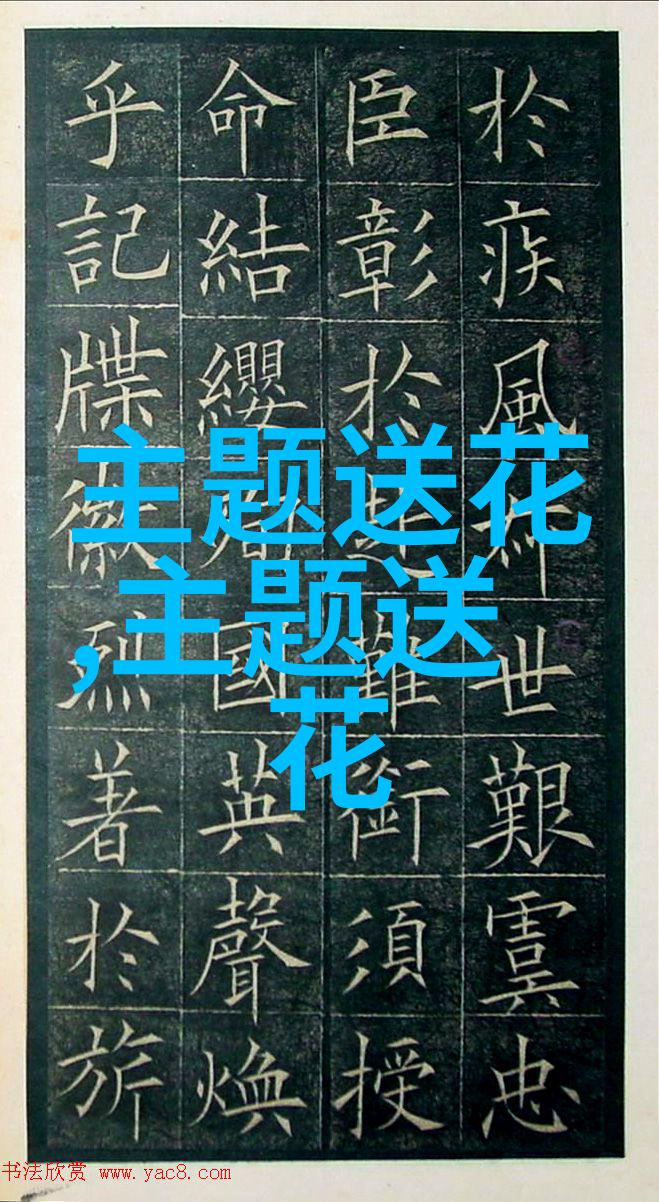 於疾風叔世艱虞忠
臣彰於赴難銜須授
命結纓殉國英聲煥
乎記牒徽烈著於旂
主题送花
,主题送
花
书法欣赏 www.yac8.com